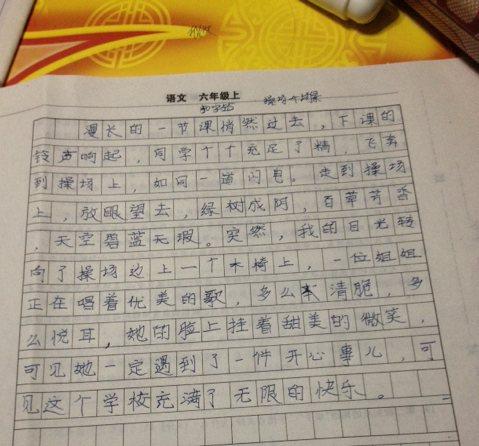 语文 六年级上
漫长的一节课悄然过去，下课的
铃声响起，同学个个充足了精，飞奔
到操场上，如同一道闪电。走到操场
上，放眼望去，绿树成阿，百草芳香
，天空碧蓝无瑕。突然，我的目光转
向了操场边上一个木椅上，一位姐姐
正在唱着优美的歌，多么清脆，多
么悦耳，她的脸上挂着甜美的微笑，
可见她一定遇到了一件开心事儿，可
见这个学校充满了无限的快乐。